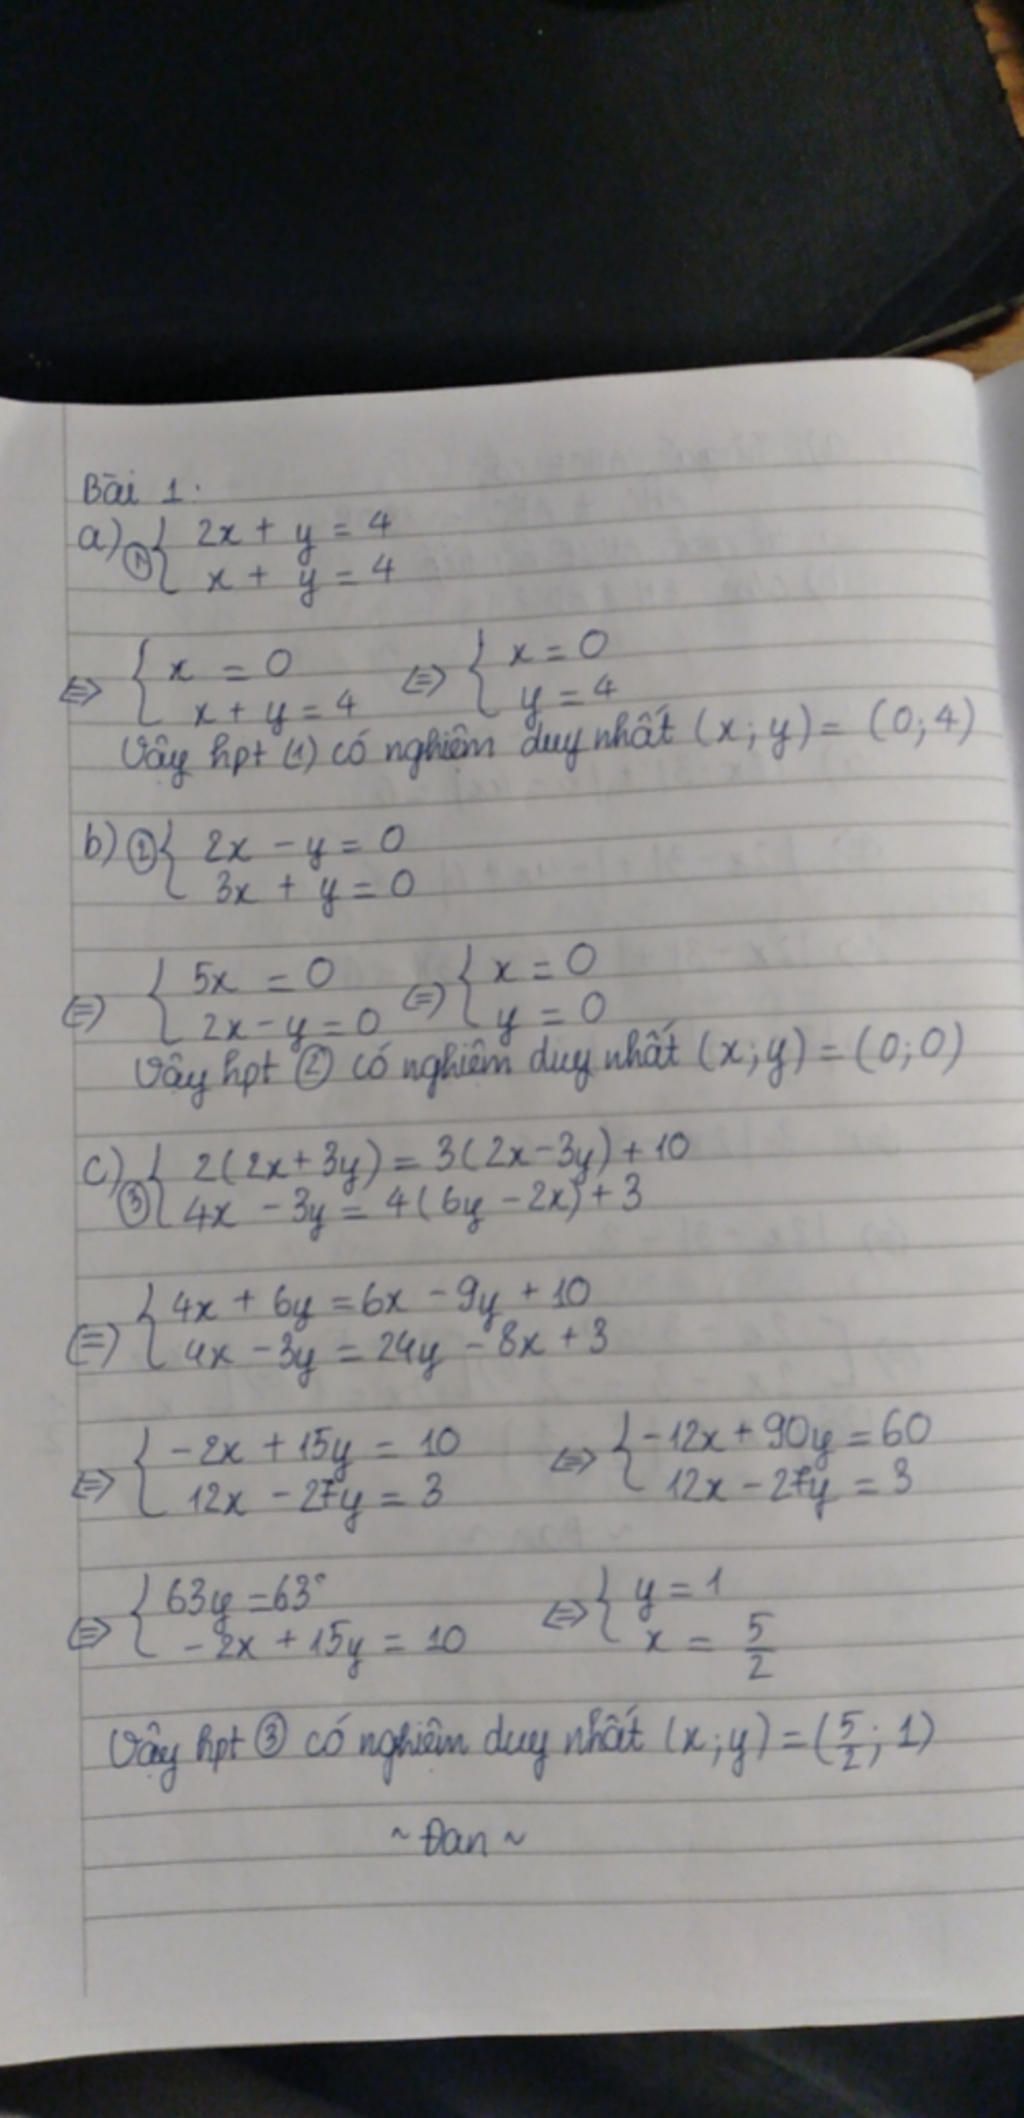 Bài 1:
a) ① { 2x + y = 4
x + y = 4
⇔ { x = 0 ⇔ { x = 0
x + y = 4 y = 4
Vậy hpt (1) có nghiệm duy nhất (x; y) = (0; 4)
b) ② { 2x - y = 0
3x + y = 0
⇔ { 5x = 0 ⇔ { x = 0
2x - y = 0 y = 0
Vậy hpt ② có nghiệm duy nhất (x; y) = (0; 0)
c) ③ { 2(2x + 3y) = 3(2x - 3y) + 10
4x - 3y = 4(6y - 2x) + 3
⇔ { 4x + 6y = 6x - 9y + 10
4x - 3y = 24y - 8x + 3
⇔ { -2x + 15y = 10 ⇔ { -12x + 90y = 60
12x - 27y = 3 12x - 27y = 3
⇔ { 63y = 63 ⇔ { y = 1
-2x + 15y = 10 x = 5/2
Vậy hpt ③ có nghiệm duy nhất (x; y) = (5/2; 1)
~ Đan ~